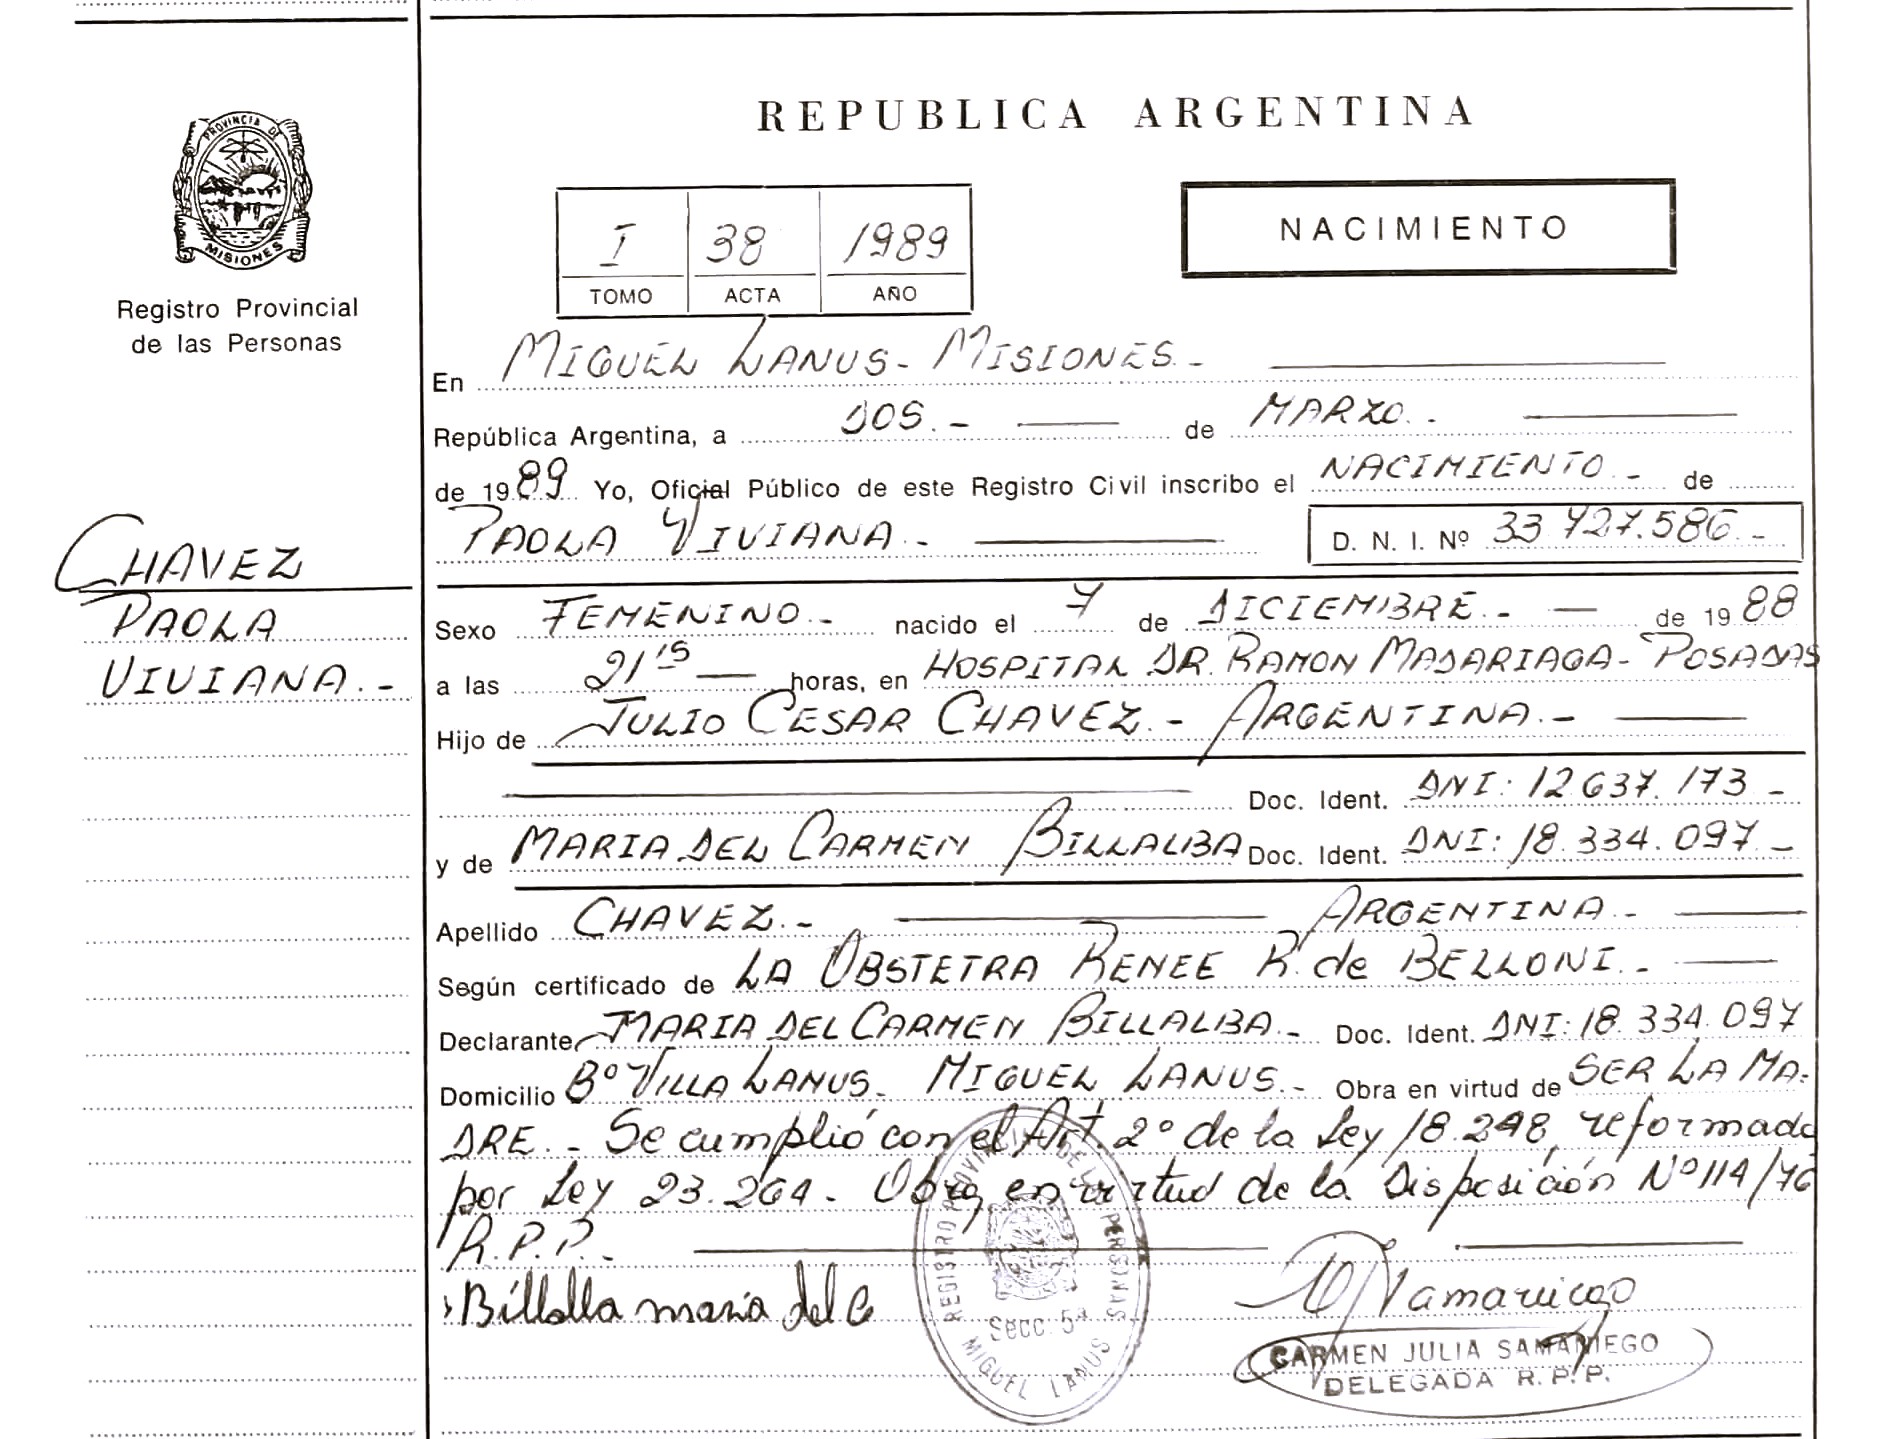 REPUBLICA ARGENTINA
PROVINCIA DE
MISIONES
Registro Provincial
de las Personas
I 38 1989
TOMO ACTA AÑO
NACIMIENTO
En MIGUEL LANUS - MISIONES. -
República Argentina, a DOS. - de MARZO. -
de 1989 Yo, Oficial Público de este Registro Civil inscribo el NACIMIENTO - de
PAOLA VIVIANA. - D. N. I. Nº 33 727.586. -
CHAVEZ
PAOLA
VIVIANA. -
Sexo FEMENINO. - nacido el 7 de DICIEMBRE. - de 1988
a las 21'15 horas, en HOSPITAL DR. RAMON MADARIAGA - POSADAS
Hijo de JULIO CESAR CHAVEZ. - ARGENTINA. -
Doc. Ident. DNI: 12 637. 173 -
y de MARIA DEL CARMEN BILLALBA Doc. Ident. DNI: 18. 334. 097. -
Apellido CHAVEZ. - ARGENTINA. -
Según certificado de LA OBSTETRA RENEE R. de BELLONI. -
Declarante MARIA DEL CARMEN BILLALBA. - Doc. Ident. DNI: 18. 334. 097
Domicilio Bº VILLA LANUS - MIGUEL LANUS. - Obra en virtud de SER LA MA-
DRE. - Se cumplió con el Art. 2º de la Ley 18.248, reformada
por Ley 23.264. Obra en virtud de la Disposición Nº 114/76
R.P.P. -
Billalla maria del C
REGISTRO PROVINCIAL DE LAS PERSONAS
Secc. 5ª
MIGUEL LANUS
CARMEN JULIA SAMANIEGO
DELEGADA R. P. P.